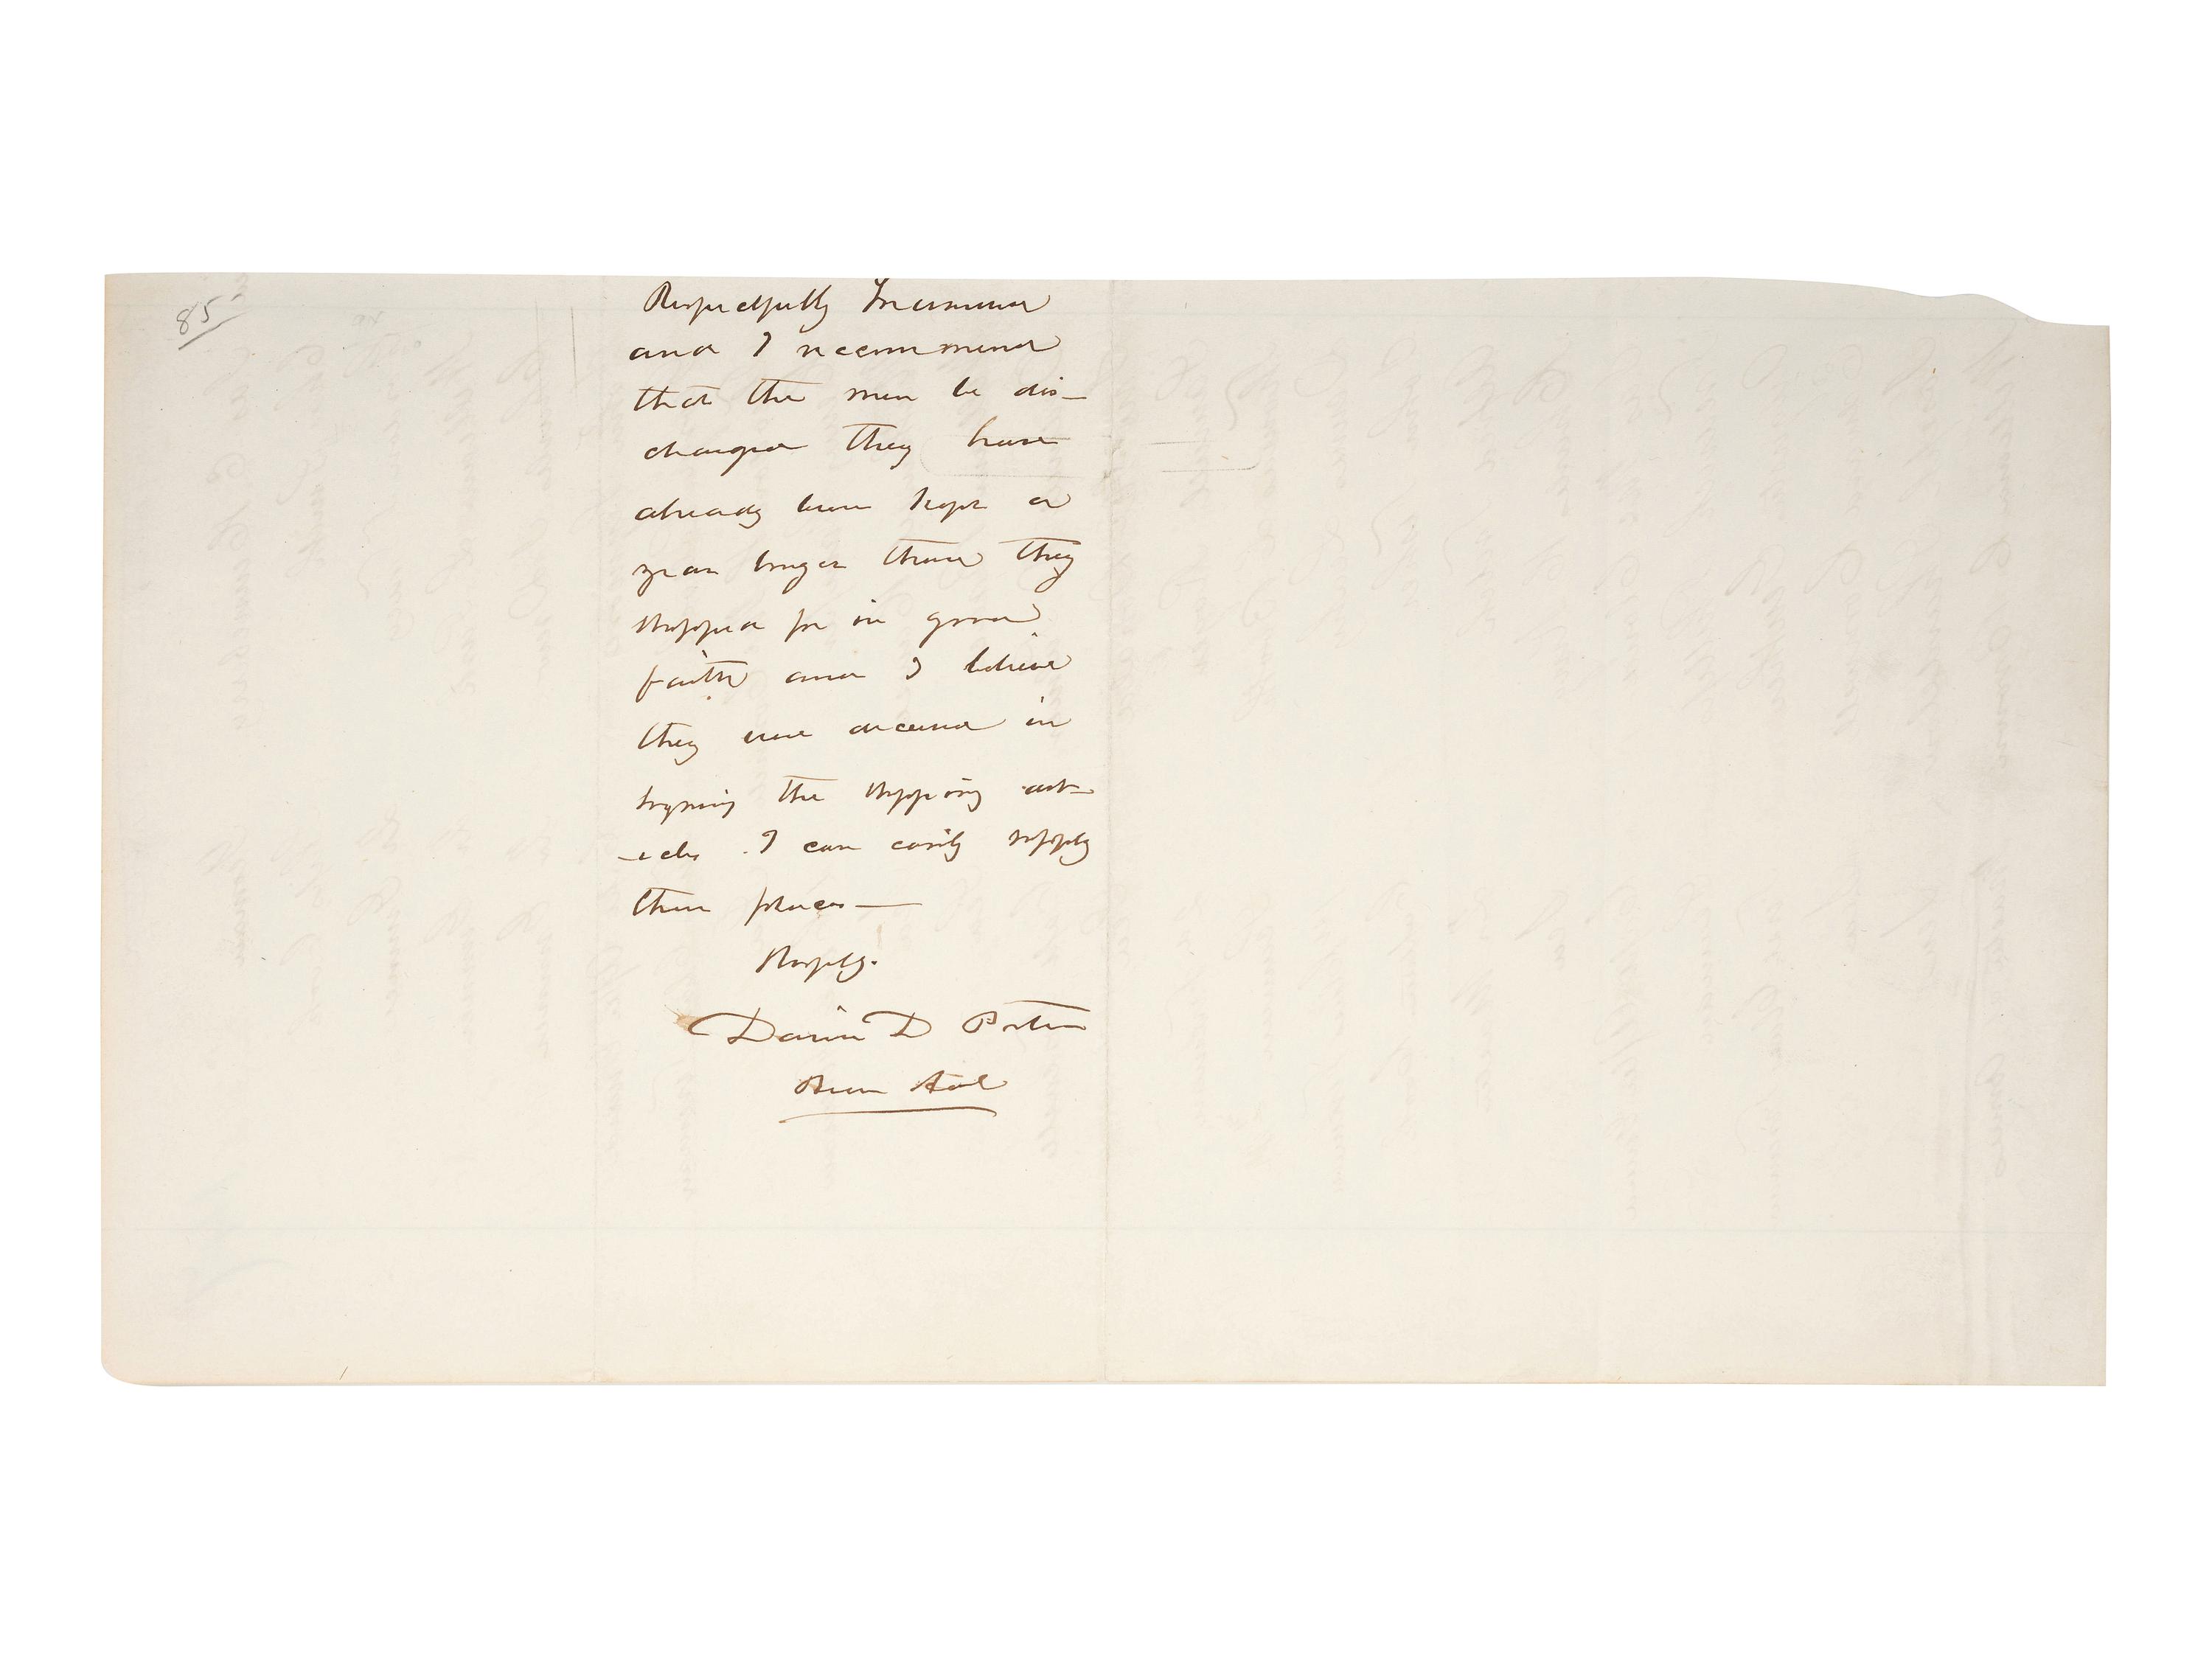 85
Respectfully Forwarded
and I recommend
that the men be dis-
charged they have
already been kept a
year longer than they
shipped for in good
faith and I believe
they were deceived in
signing the shipping art-
-icles. I can easily supply
their places—
Respty.
David D Porter
Rear Adl